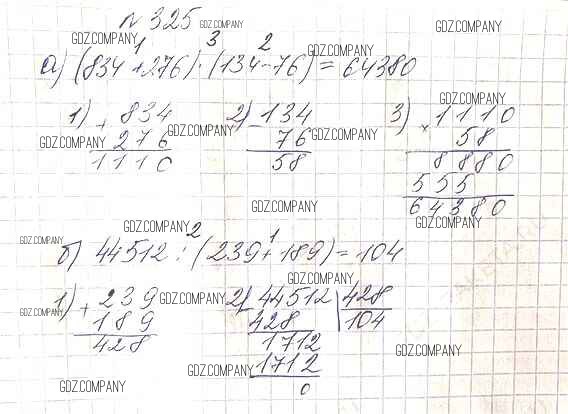 № 325
GDZ.COMPANY
GDZ.COMPANY 1 3 2 GDZ.COMPANY
а) (834 + 276) · (134 - 76) = 64380
1) + 834 2) - 134 3) × 1110
GDZ.COMPANY
276 76 58
GDZ.COMPANY GDZ.COMPANY GDZ.COMPANY
1110 58 8880
555
64380
GDZ.COMPANY GDZ.COMPANY
GDZ.COMPANY 2 1
GDZ.COMPANY
б) 44512 : (239 + 189) = 104
GDZ.COMPANY
1) + 239 2) - 44512 | 428
GDZ.COMPANY
189 428 104
GDZ.COMPANY
428 1712
GDZ.COMPANY
1712
GDZ.COMPANY
0
GDZ.COMPANY